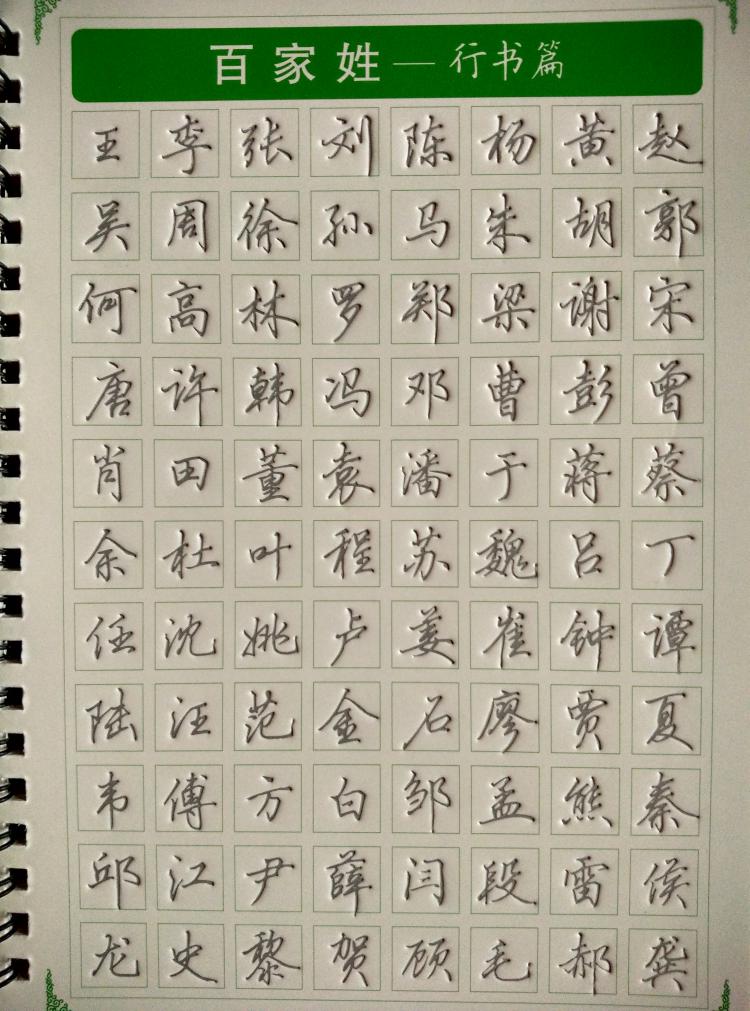 百家姓—行书篇
王李张刘陈杨黄赵
吴周徐孙马朱胡郭
何高林罗郑梁谢宋
唐许韩冯邓曹彭曾
肖田董袁潘于蒋蔡
余杜叶程苏魏吕丁
任沈姚卢姜崔钟谭
陆汪范金石廖贾夏
韦傅方白邹孟熊秦
邱江尹薛闫段雷侯
龙史黎贺顾毛郝龚